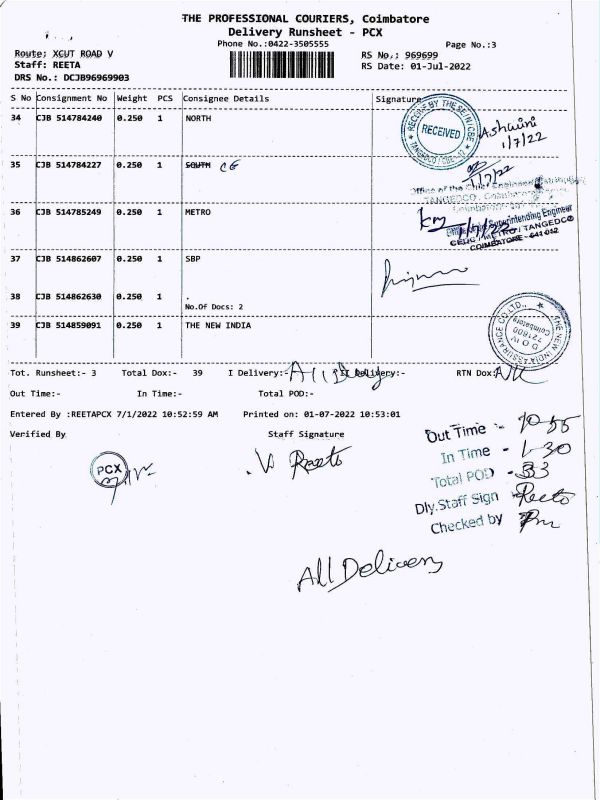 THE PROFESSIONAL COURIERS, Coimbatore
Delivery Runsheet - PCX
Phone No.:0422-3505555
Page No.:3
Route: XCUT ROAD V
RS No.: 969699
Staff: REETA
RS Date: 01-Jul-2022
DRS No.: DCJB96969903
S No Consignment No Weight PCS Consignee Details Signature
34 CJB 514784240 0.250 1 NORTH
RECEIVED
Ashwini
1/7/22
35 CJB 514784227 0.250 1 SOUTH CG
1/7/22
Office of the Chief Engineer/Distribution
TANGEDCO, Coimbatore
36 CJB 514785249 0.250 1 METRO
Superintending Engineer
CEDC / METRO / TANGEDCO
COIMBATORE - 641 012
37 CJB 514862607 0.250 1 SBP
38 CJB 514862630 0.250 1 .
No.Of Docs: 2
39 CJB 514859091 0.250 1 THE NEW INDIA
THE NEW INDIA ASSURANCE CO. LTD.,
D O IV
721800
Coimbatore
Tot. Runsheet:- 3 Total Dox:- 39 I Delivery:- All Delivery:- RTN Dox: Nil
Out Time:- In Time:- Total POD:-
Entered By :REETAPCX 7/1/2022 10:52:59 AM Printed on: 01-07-2022 10:53:01
Verified By Staff Signature
PCX
V Reeta
Out Time - 10-55
In Time - 1-30
Total POD - 33
Dly.Staff Sign Reeta
Checked by
All Delivery